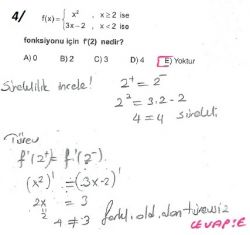 4/ f(x)= { x² , x ≥ 2 ise
3x-2 , x < 2 ise
fonksiyonu için f'(2) nedir?
A) 0 B) 2 C) 3 D) 4 E) Yoktur
Süreklilik incele! 2⁺ = 2⁻
2² = 3.2 - 2
4 = 4 sürekli
Türev
f'(2⁺) = f'(2⁻).
(x²)' = (3x-2)'
2x = 3
4 ≠ 3 farklı old. dan türevsiz
CEVAP: E